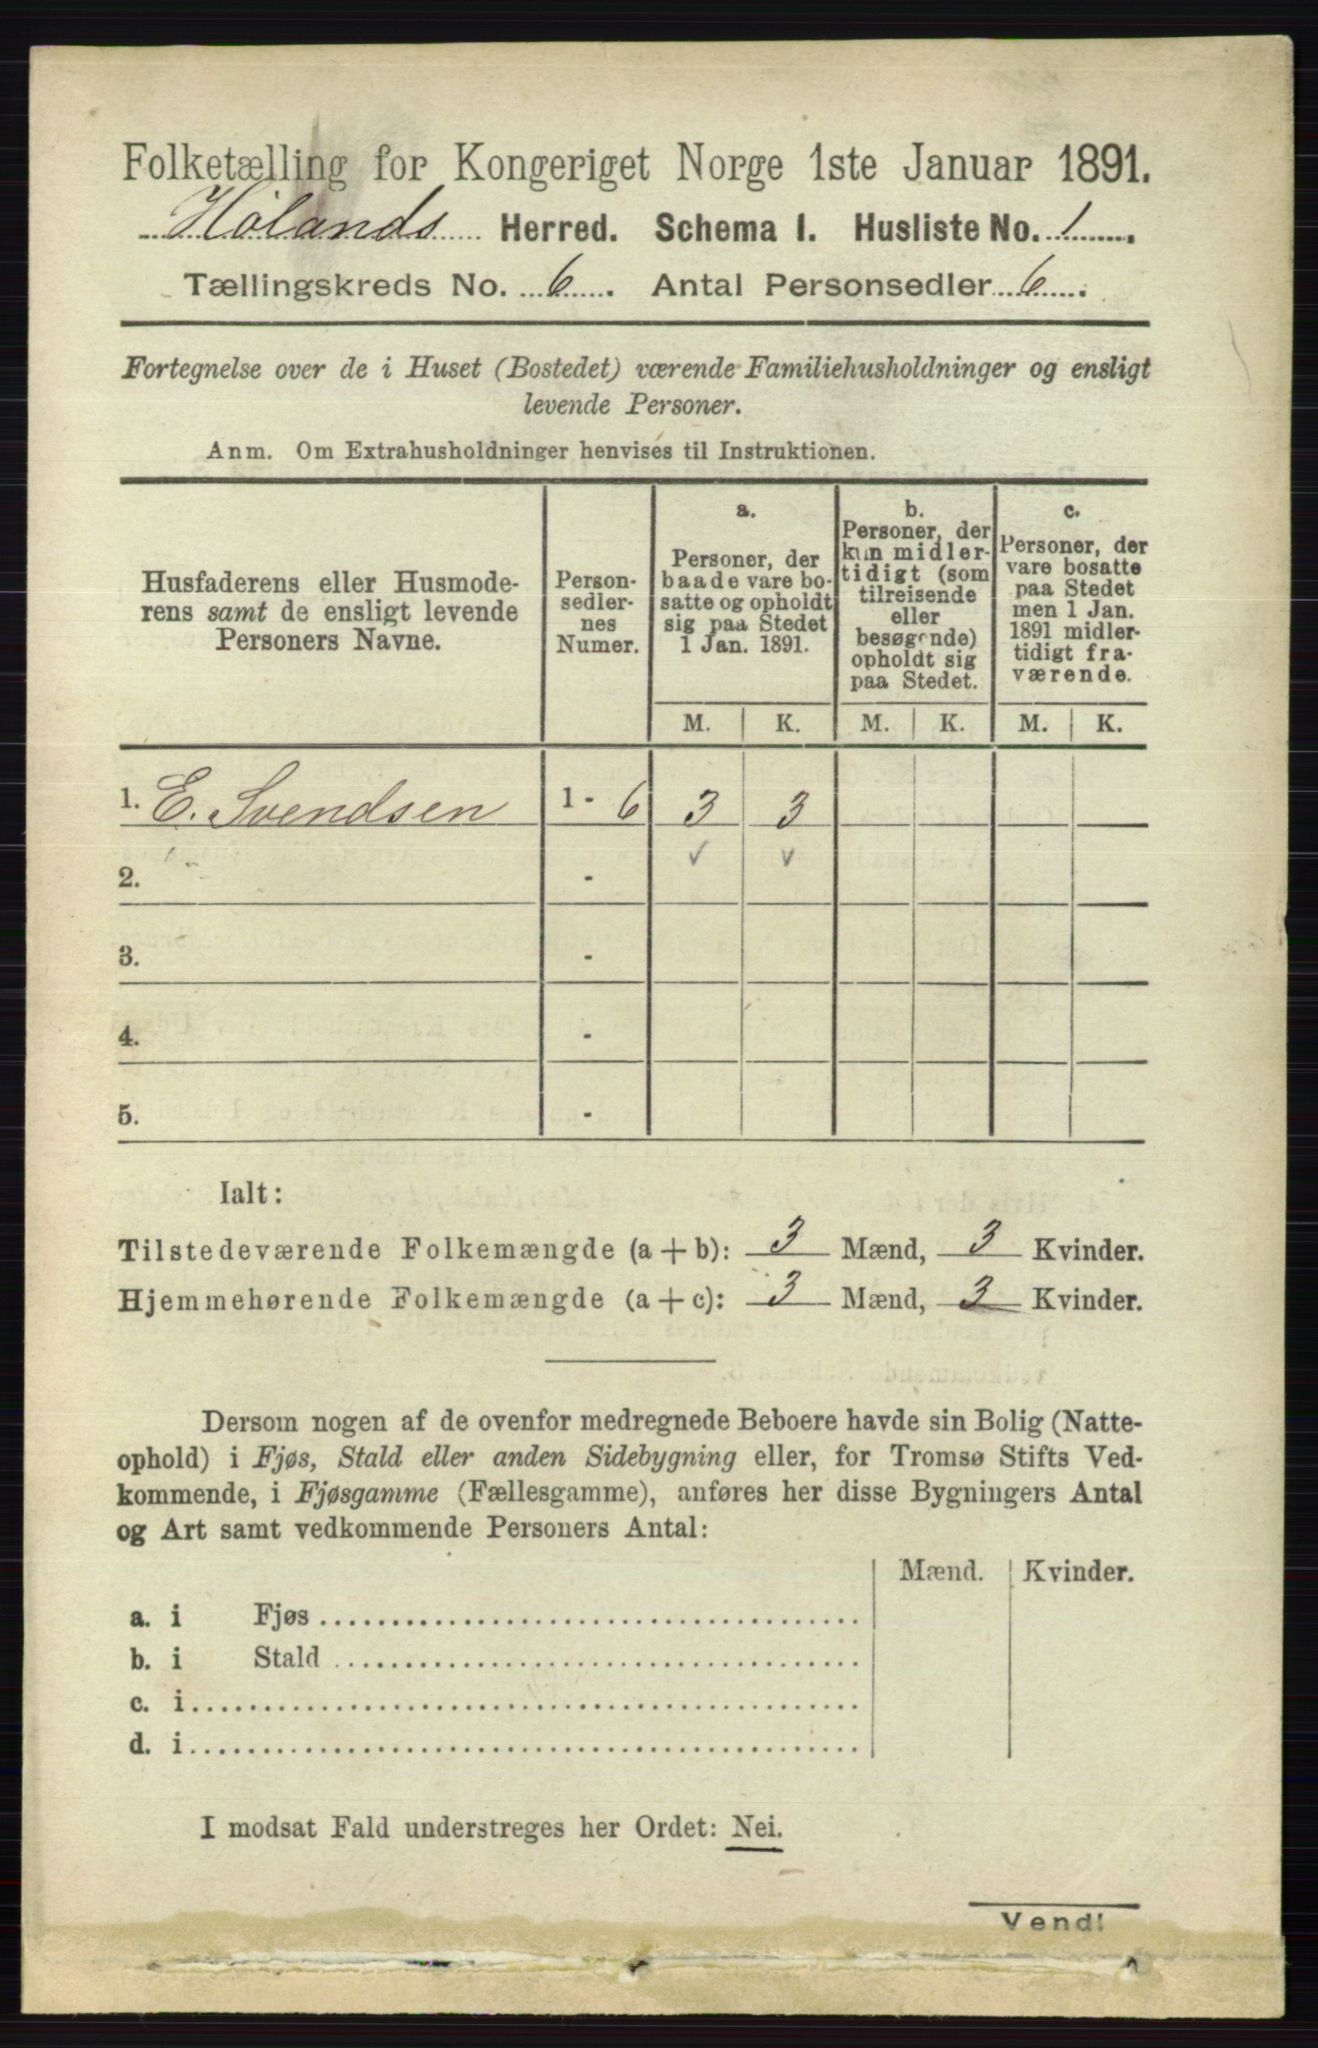 Folketælling for Kongeriget Norge 1ste Januar 1891.
Hølands Herred. Schema I. Husliste No. 1.
Tællingskreds No. 6. Antal Personsedler 6.
Fortegnelse over de i Huset (Bostedet) værende Familiehusholdninger og ensligt
levende Personer.
Anm. Om Extrahusholdninger henvises til Instruktionen.
Husfaderens eller Husmode-
rens samt de ensligt levende
Personers Navne.
Person-
sedler-
nes
Numer.
a.
Personer, der
baade vare bo-
satte og opholdt
sig paa Stedet
1 Jan. 1891.
b.
Personer, der
kun midler-
tidigt (som
tilreisende
eller
besøgende)
opholdt sig
paa Stedet.
c.
Personer, der
vare bosatte
paa Stedet
men 1 Jan.
1891 midler-
tidigt fra-
værende.
M. K. M. K. M. K.
1. E. Svendsen 1 - 6 3 3
2. -
3. -
4. -
5. -
Ialt:
Tilstedeværende Folkemængde (a + b): 3 Mænd, 3 Kvinder.
Hjemmehørende Folkemængde (a + c): 3 Mænd, 3 Kvinder.
Dersom nogen af de ovenfor medregnede Beboere havde sin Bolig (Natte-
ophold) i Fjøs, Stald eller anden Sidebygning eller, for Tromsø Stifts Ved-
kommende, i Fjøsgamme (Fællesgamme), anføres her disse Bygningers Antal
og Art samt vedkommende Personers Antal:
Mænd. Kvinder.
a. i Fjøs
b. i Stald
c. i
d. i
I modsat Fald understreges her Ordet: Nei.
Vend!